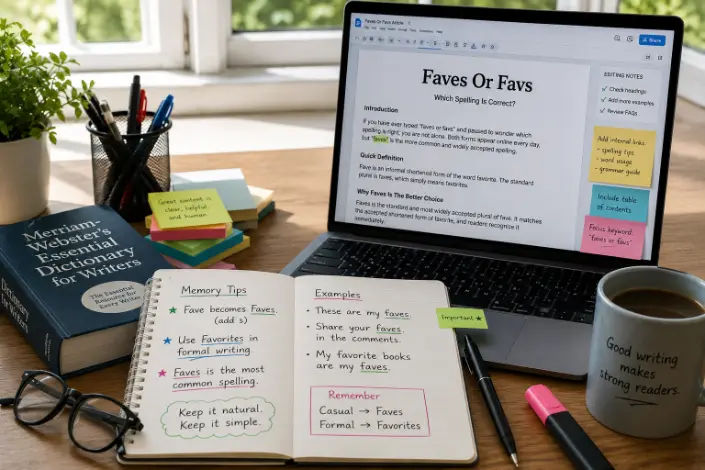 Faves Or Favs Article
Share
Faves Or Favs
Which Spelling Is Correct?
Introduction
If you have ever typed "faves or favs" and paused to wonder which
spelling is right, you are not alone. Both forms appear online every day,
but "faves" is the more common and widely accepted spelling.
Quick Definition
Fave is an informal shortened form of the word favorite. The standard
plural is faves, which simply means favorites.
Why Faves Is The Better Choice
Faves is the standard and most widely accepted plural of fave. It matches
the accepted shortened form of favorite, and readers recognize it
immediately.
EDITING NOTES
✓ Check headings
✓ Add more examples
✓ Review FAQs
Add internal links:
- spelling tips
- word usage
- grammar guide
Include table
of contents
Focus keyword:
"faves or favs"
Great content is
clear, helpful,
and human
Merriam-
Webster's
Essential
Dictionary
for Writers
The Essential
Resource for
Every Writer
Memory Tips
★ Fave becomes Faves.
(add s)
★ Use Favorites in
formal writing
★ Faves is the most
common spelling.
Keep it natural.
Keep it simple.
Examples
• These are my faves.
• Share your faves
in the comments.
• My favorite books
are my faves.
Remember
Casual → Faves
Formal → Favorites
Important ★
Good writing
makes
strong readers.